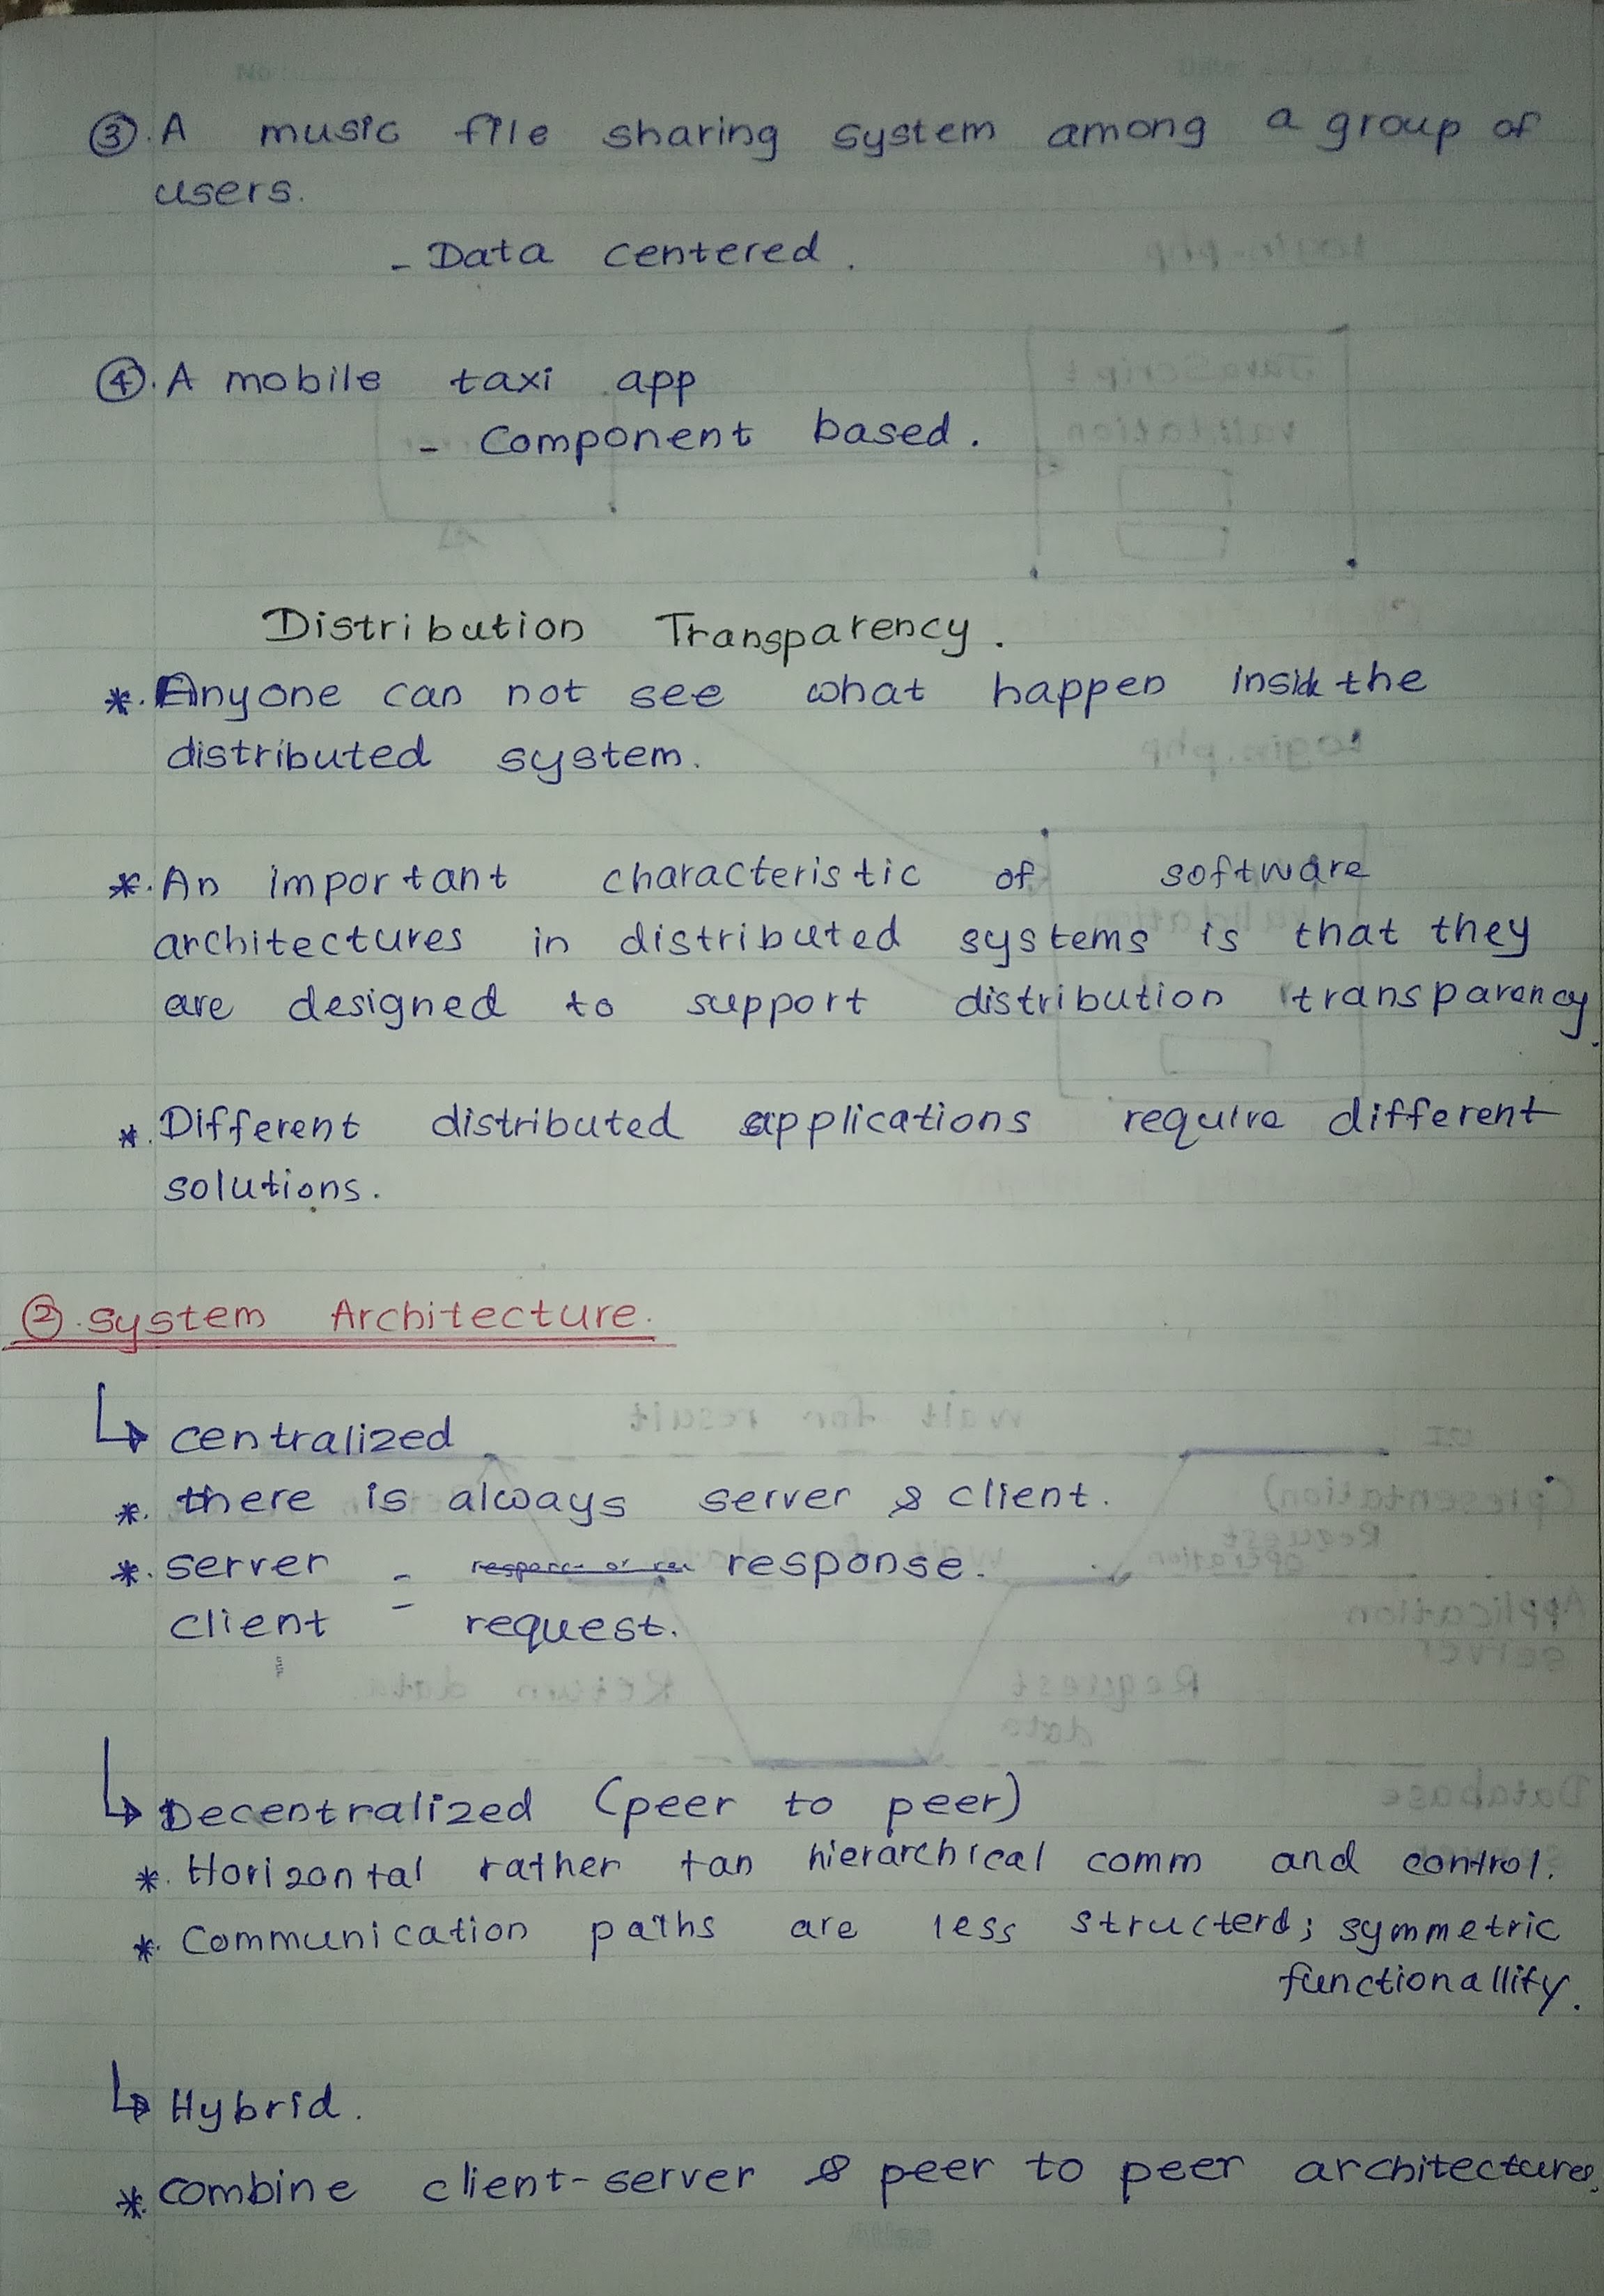 ③. A music file sharing system among a group of
users.
- Data centered.
④. A mobile taxi app
- Component based.
Distribution Transparency.
*. Anyone can not see what happen inside the
distributed system.
*. An important characteristic of software
architectures in distributed systems is that they
are designed to support distribution transparency.
*. Different distributed applications require different
solutions.
②. System Architecture.
↳ centralized
*. there is always server & client.
*. server - response.
client - request.
↳ Decentralized (peer to peer)
*. Horizontal rather tan hierarchical comm and control.
*. Communication paths are less structerd; symmetric
functionallity.
↳ Hybrid.
*. combine client-server & peer to peer architectures.